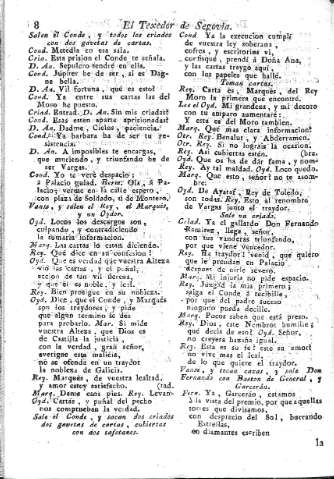 8 El Texedor de Segovia.
Salen el Conde, y todos los criados
con dos gavetas de cartas.
Cond. Metedla en esa sala.
Cria. Esta prision el Conde te señala.
D. An. Sepulcro tendré en ella.
bella.
D. An. Vil fortuna, qué es esto!
Cond. Ya entre sus cartas las del
Moro he puesto.
Criad. Entrad. D. An. Sin mis criadas?
Cond. Esas esten aparte aprisionadas
D. An. Dadme, Cielos, paciencia.
Cond. Ya barbara ha de ser tu resistencia.
D. An. A imposibles te encargas,
que muriendo y triunfando he de
ser Vargas.
Cond. Yo tu veré despacio:
Palacio; verme en la calle espero,
con plaza de Soldado, ú de Montero.
Vanse, y salen el Rey, el Marqués,
y un Oydor.
Oyd. Locos los descargos son,
culpando, y contradiciendo
la sumaria informacion.
Marq. Las cartas lo estan diciendo.
Rey. Qué dice en su confesion?
Oyd. Que es verdad que vuestra Alteza
vió las cartas, y el puñal,
accion de tan vil fiereza,
y que él es noble, y leal.
Rey. Bien prosigue en su nobleza.
Oyd. Dice, que el Conde, y Marqués
son los traydores; y pide
que algun termino le des
para probarlo. Mar. Si mide
vuestra Alteza, que Dios es
de Castilla la justicia,
con la verdad, gran señor,
averigüe esta malicia,
no se ofende en un traydor
la nobleza de Galicia.
Rey. Marqués, de vuestra lealtad,
y amor estoy satisfecho.
Marq. Deme esos pies. Rey. Levantad.
Oyd. Cartas, y puñal del pecho
nos comprueban la verdad.
Sale el Conde, y sacan dos criados
dos gavetas de cartas, cubiertas
con dos tafetanes.
Cond. Ya la execucion cumplí
de vuestra ley soberana,
cofres, y escritorios vi,
confisqué, prendí á Doña Ana,
y las cartas traygo aquí,
con los papeles que hallé.
Toman cartas.
Rey. Carta es, Marqués, del Rey
Moro la primera que encontré.
Lee el Oyd. Mi grandeza, y mi decoro
con tu amparo aumentaré:
Y esta es del Moro tambien.
Marq. Qué mas clara informacion!
Otr. Rey. Si no lográis la ocasion.
Rey. Asi cubiertas estén.
Oyd. Que os ha de dár fama, y nombre.
Rey. Ay tal maldad. Oyd. Loco quedo.
Marq. Que esto, señor! no te asombre:
Oyd. De Ayataf, Rey de Toledo,
son todas. Rey. Esto al renombre
de Vargas junto el traydor.
Sale un criado.
Criad. Ya el gallardo Don Fernando
Ramirez, llega, señor,
con tus vanderas triunfando,
por que viene vencedor.
Rey. Ha traydor! venid, que quiero
que le prendan en Palacio
despues de oirle severo.
Marq. Mi injuria no pide espacio.
Rey. Juzgad la mia primero;
salga el Conde á recibille,
por que del padre suceso
ninguno pueda decille.
Marq. Pocos saben que está preso.
Rey. Dios, este Hombre humilla;
que decia de eso? Oyd. Señor,
no creyera hazaña igual.
Rey. Esta es su fe! esto su amor!
no vive mas el leal,
de lo que quiere el traydor.
Vanse, y tocan caxas, y sale Don
Fernando con Baston de General, y
Garcerán.
Fern. Ya, Garcerán, estamos
á la vista del premio, por que aquellas
torres que divisamos,
con desprecio del Sol, hurrando
Estrellas,
en diamantes escriben
la